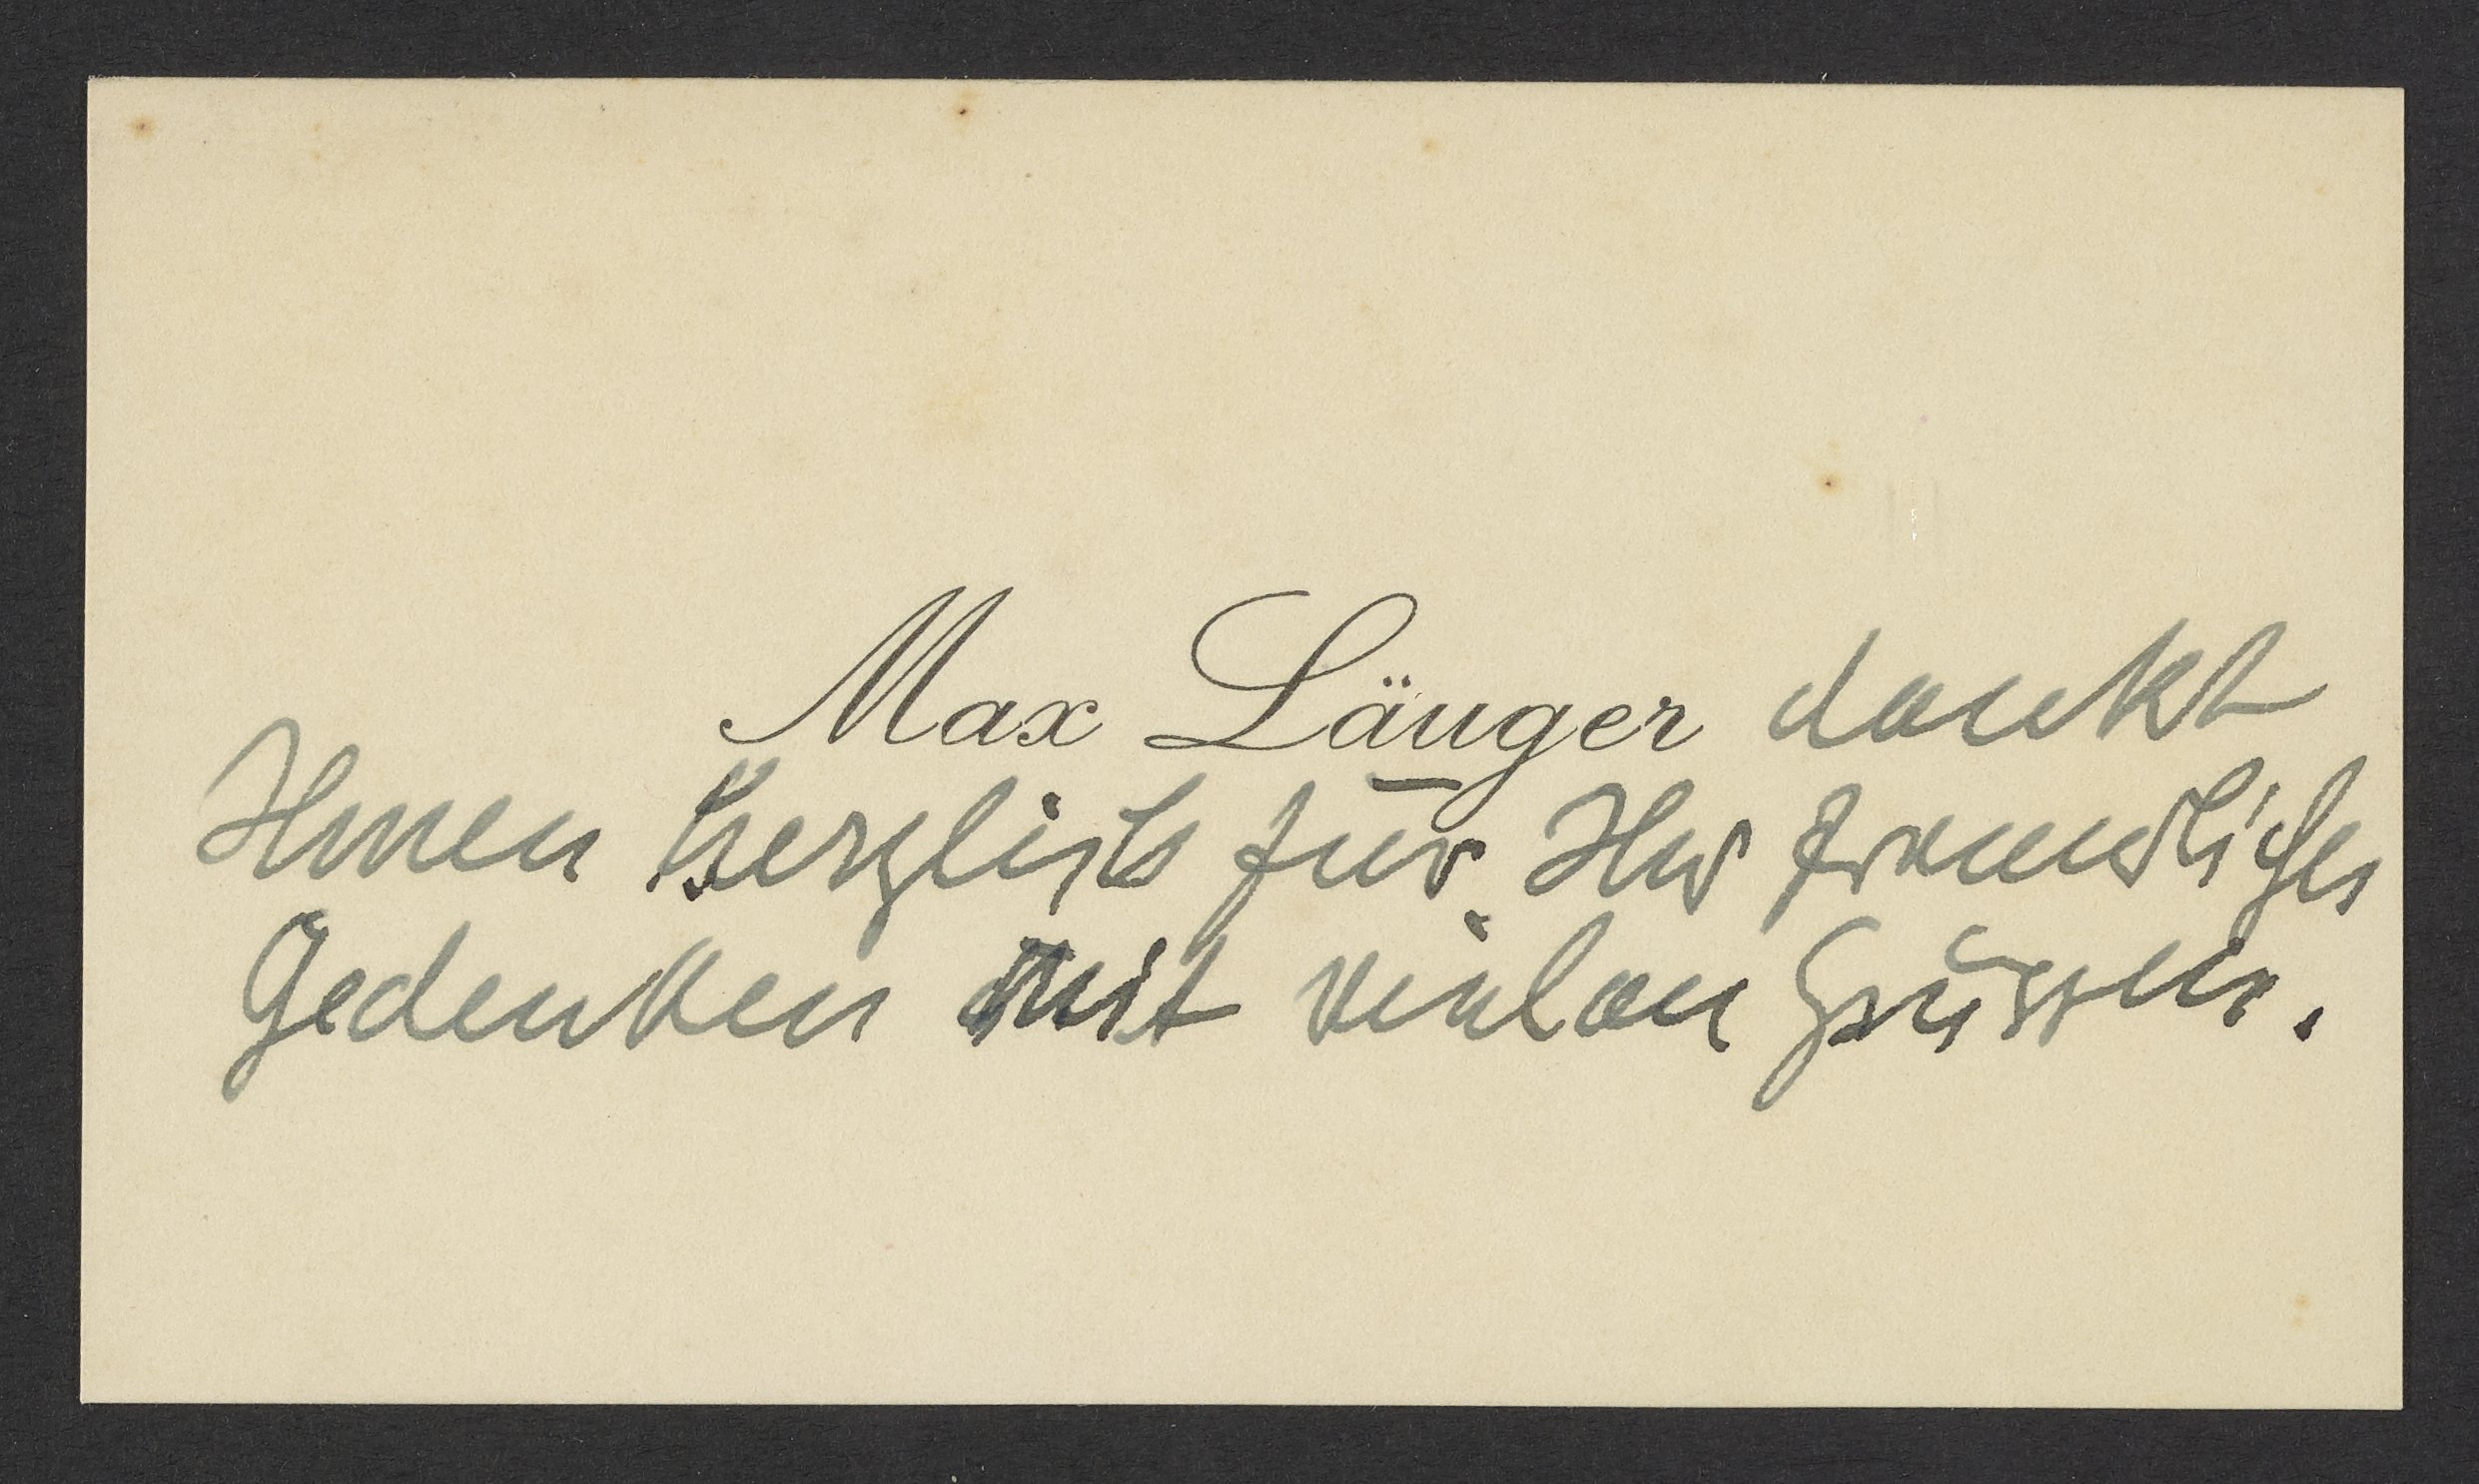 Max Läuger dankt
Ihnen herzlich für Ihr freundliches
Gedenken mit vielen Grüssen.